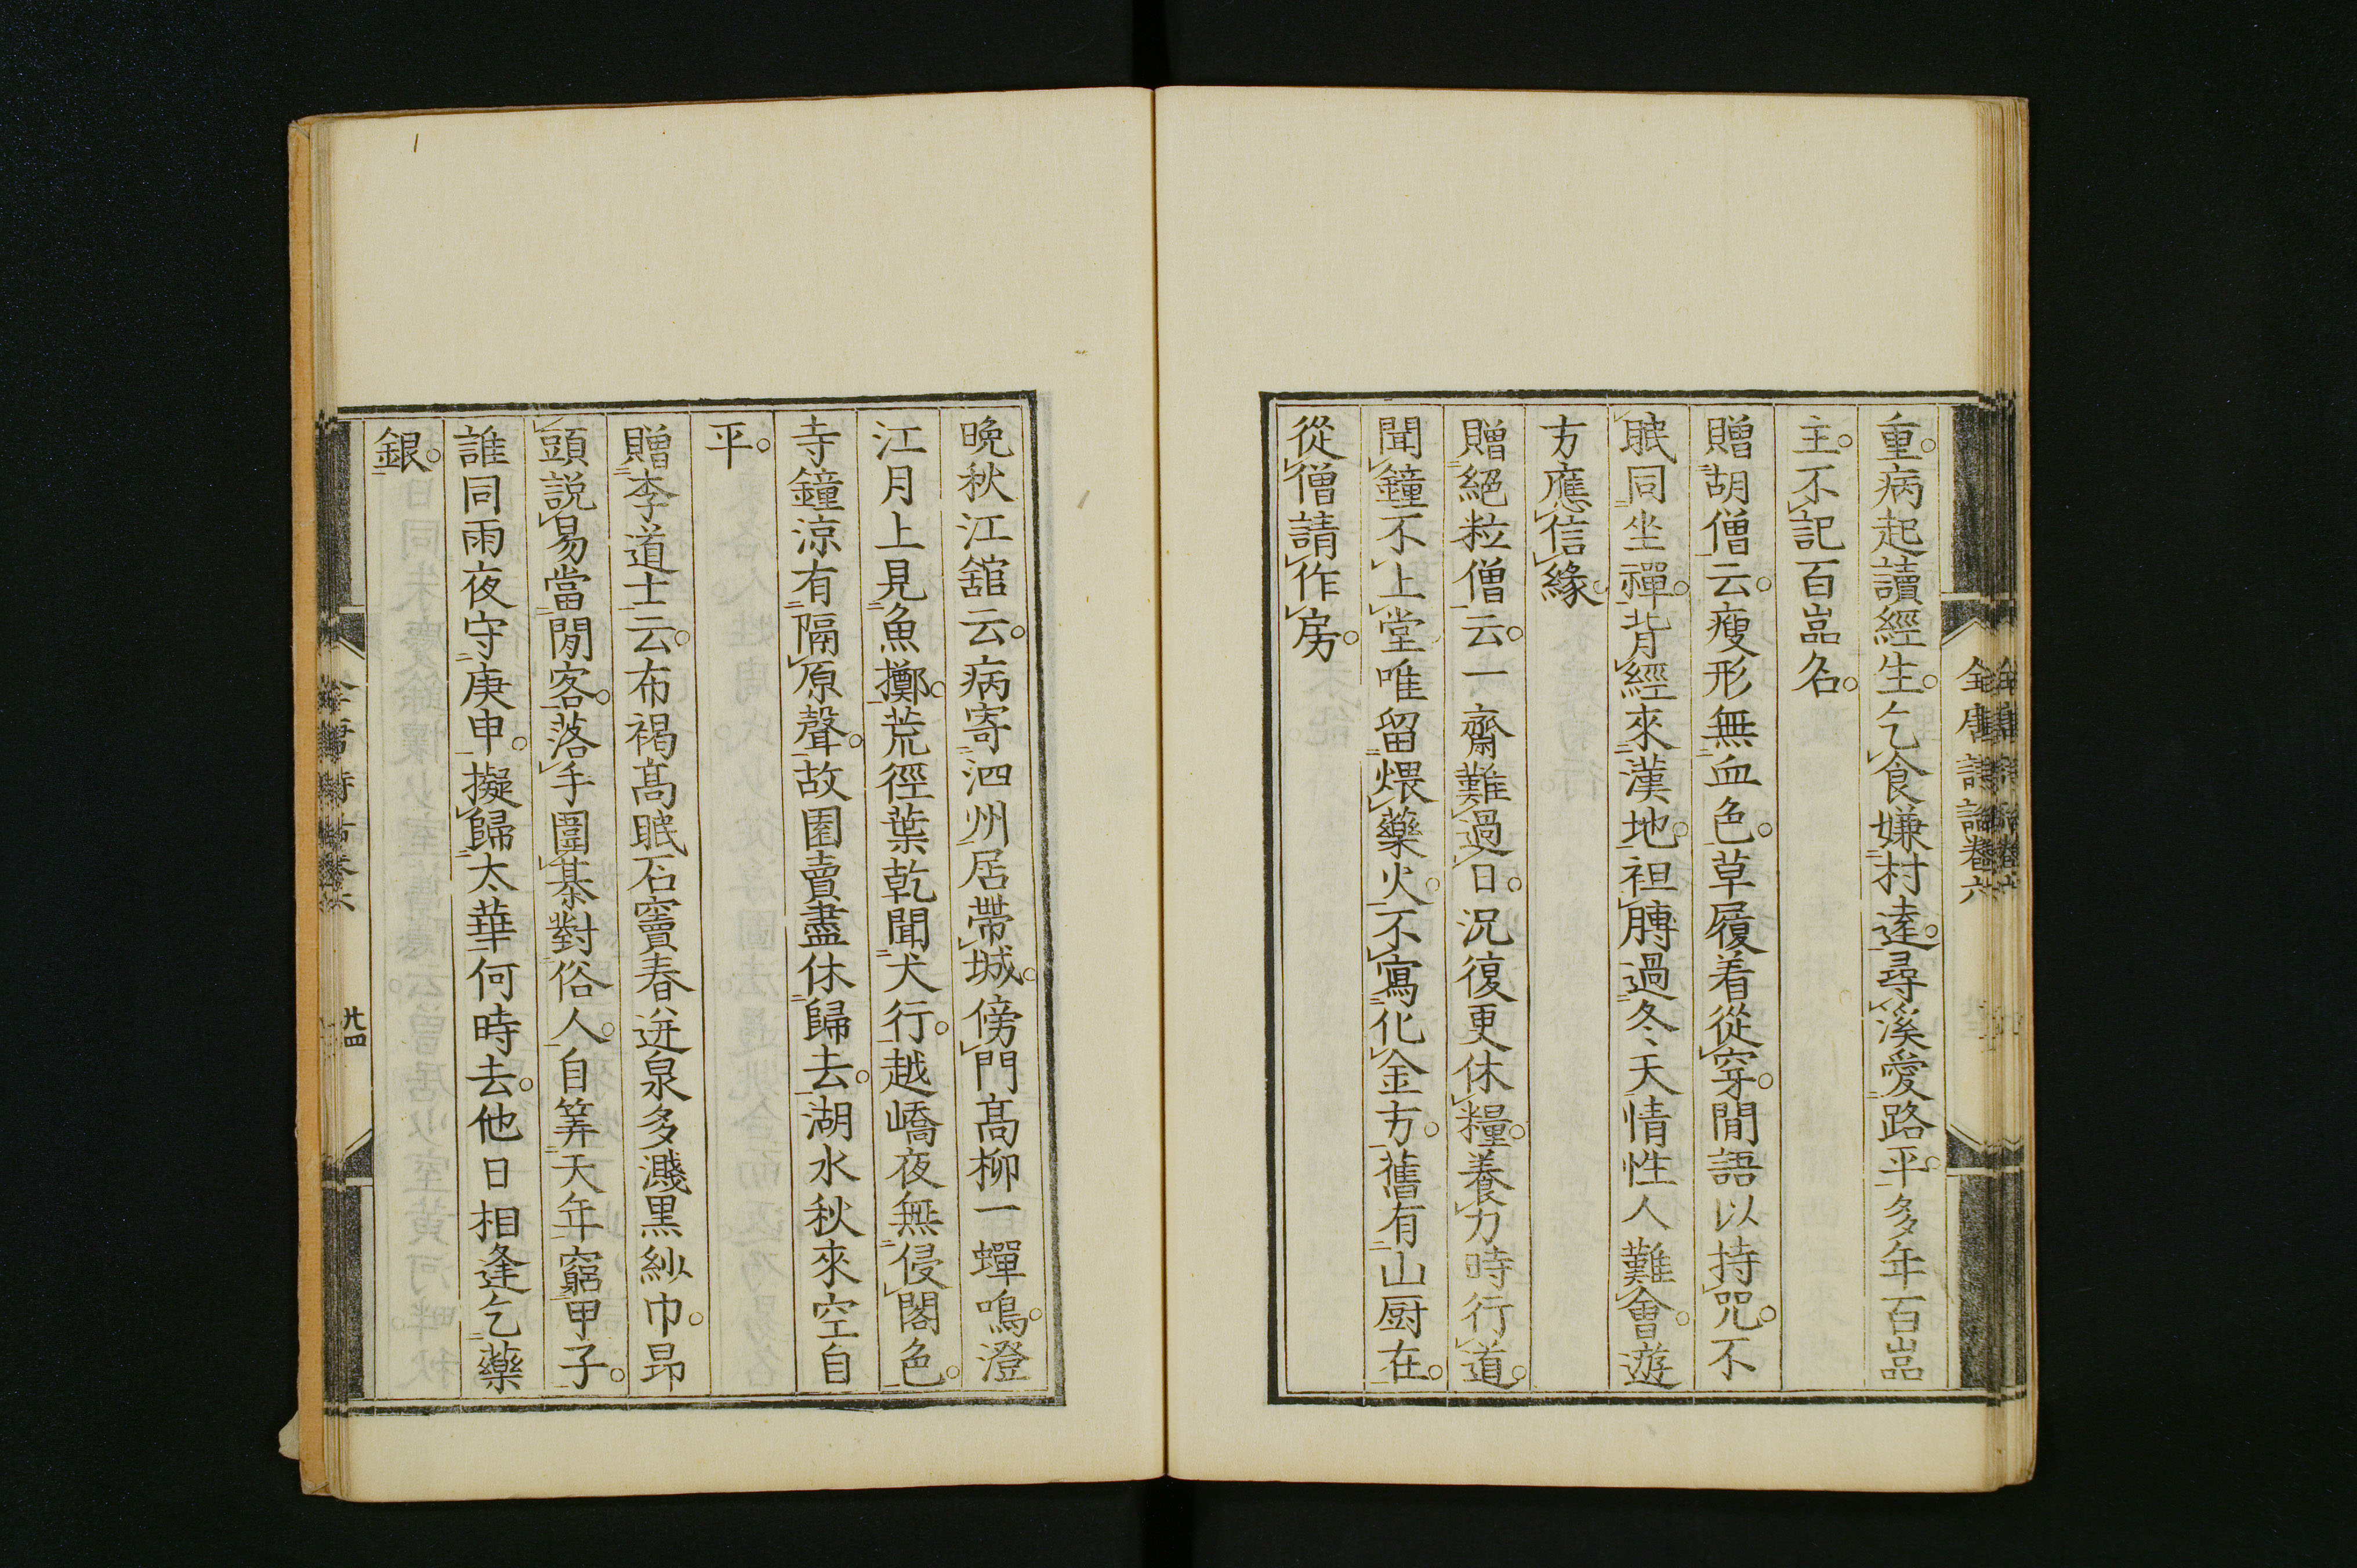 全唐詩話卷六
重病起讀經生乞食嫌村遠尋溪愛路平多年百嵓
主不記百嵓名
贈胡僧云瘦形無血色草履着從穿閒語以持咒不
眠同坐禪背經來漢地袒膊過冬天情性人難會遊
方應信緣
贈絕粒僧云一齋難過日況復更休糧養力時行道
聞鐘不上堂唯留煨藥火不寫化金方舊有山厨在
從僧請作房
晚秋江舘云病寄泗州居帶城傍門高柳一蟬鳴澄
江月上見魚擲荒徑葉乾聞犬行越嶠夜無侵閣色
寺鐘涼有隔原聲故園賣盡休歸去湖水秋來空自
平
贈李道士云布褐髙眠石竇春迸泉多濺黒紗巾昂
頭説易當閒客落手圍棊對俗人自筭天年窮甲子
誰同雨夜守庚申擬歸太華何時去他日相逢乞藥
銀
全唐詩話卷六
廿四